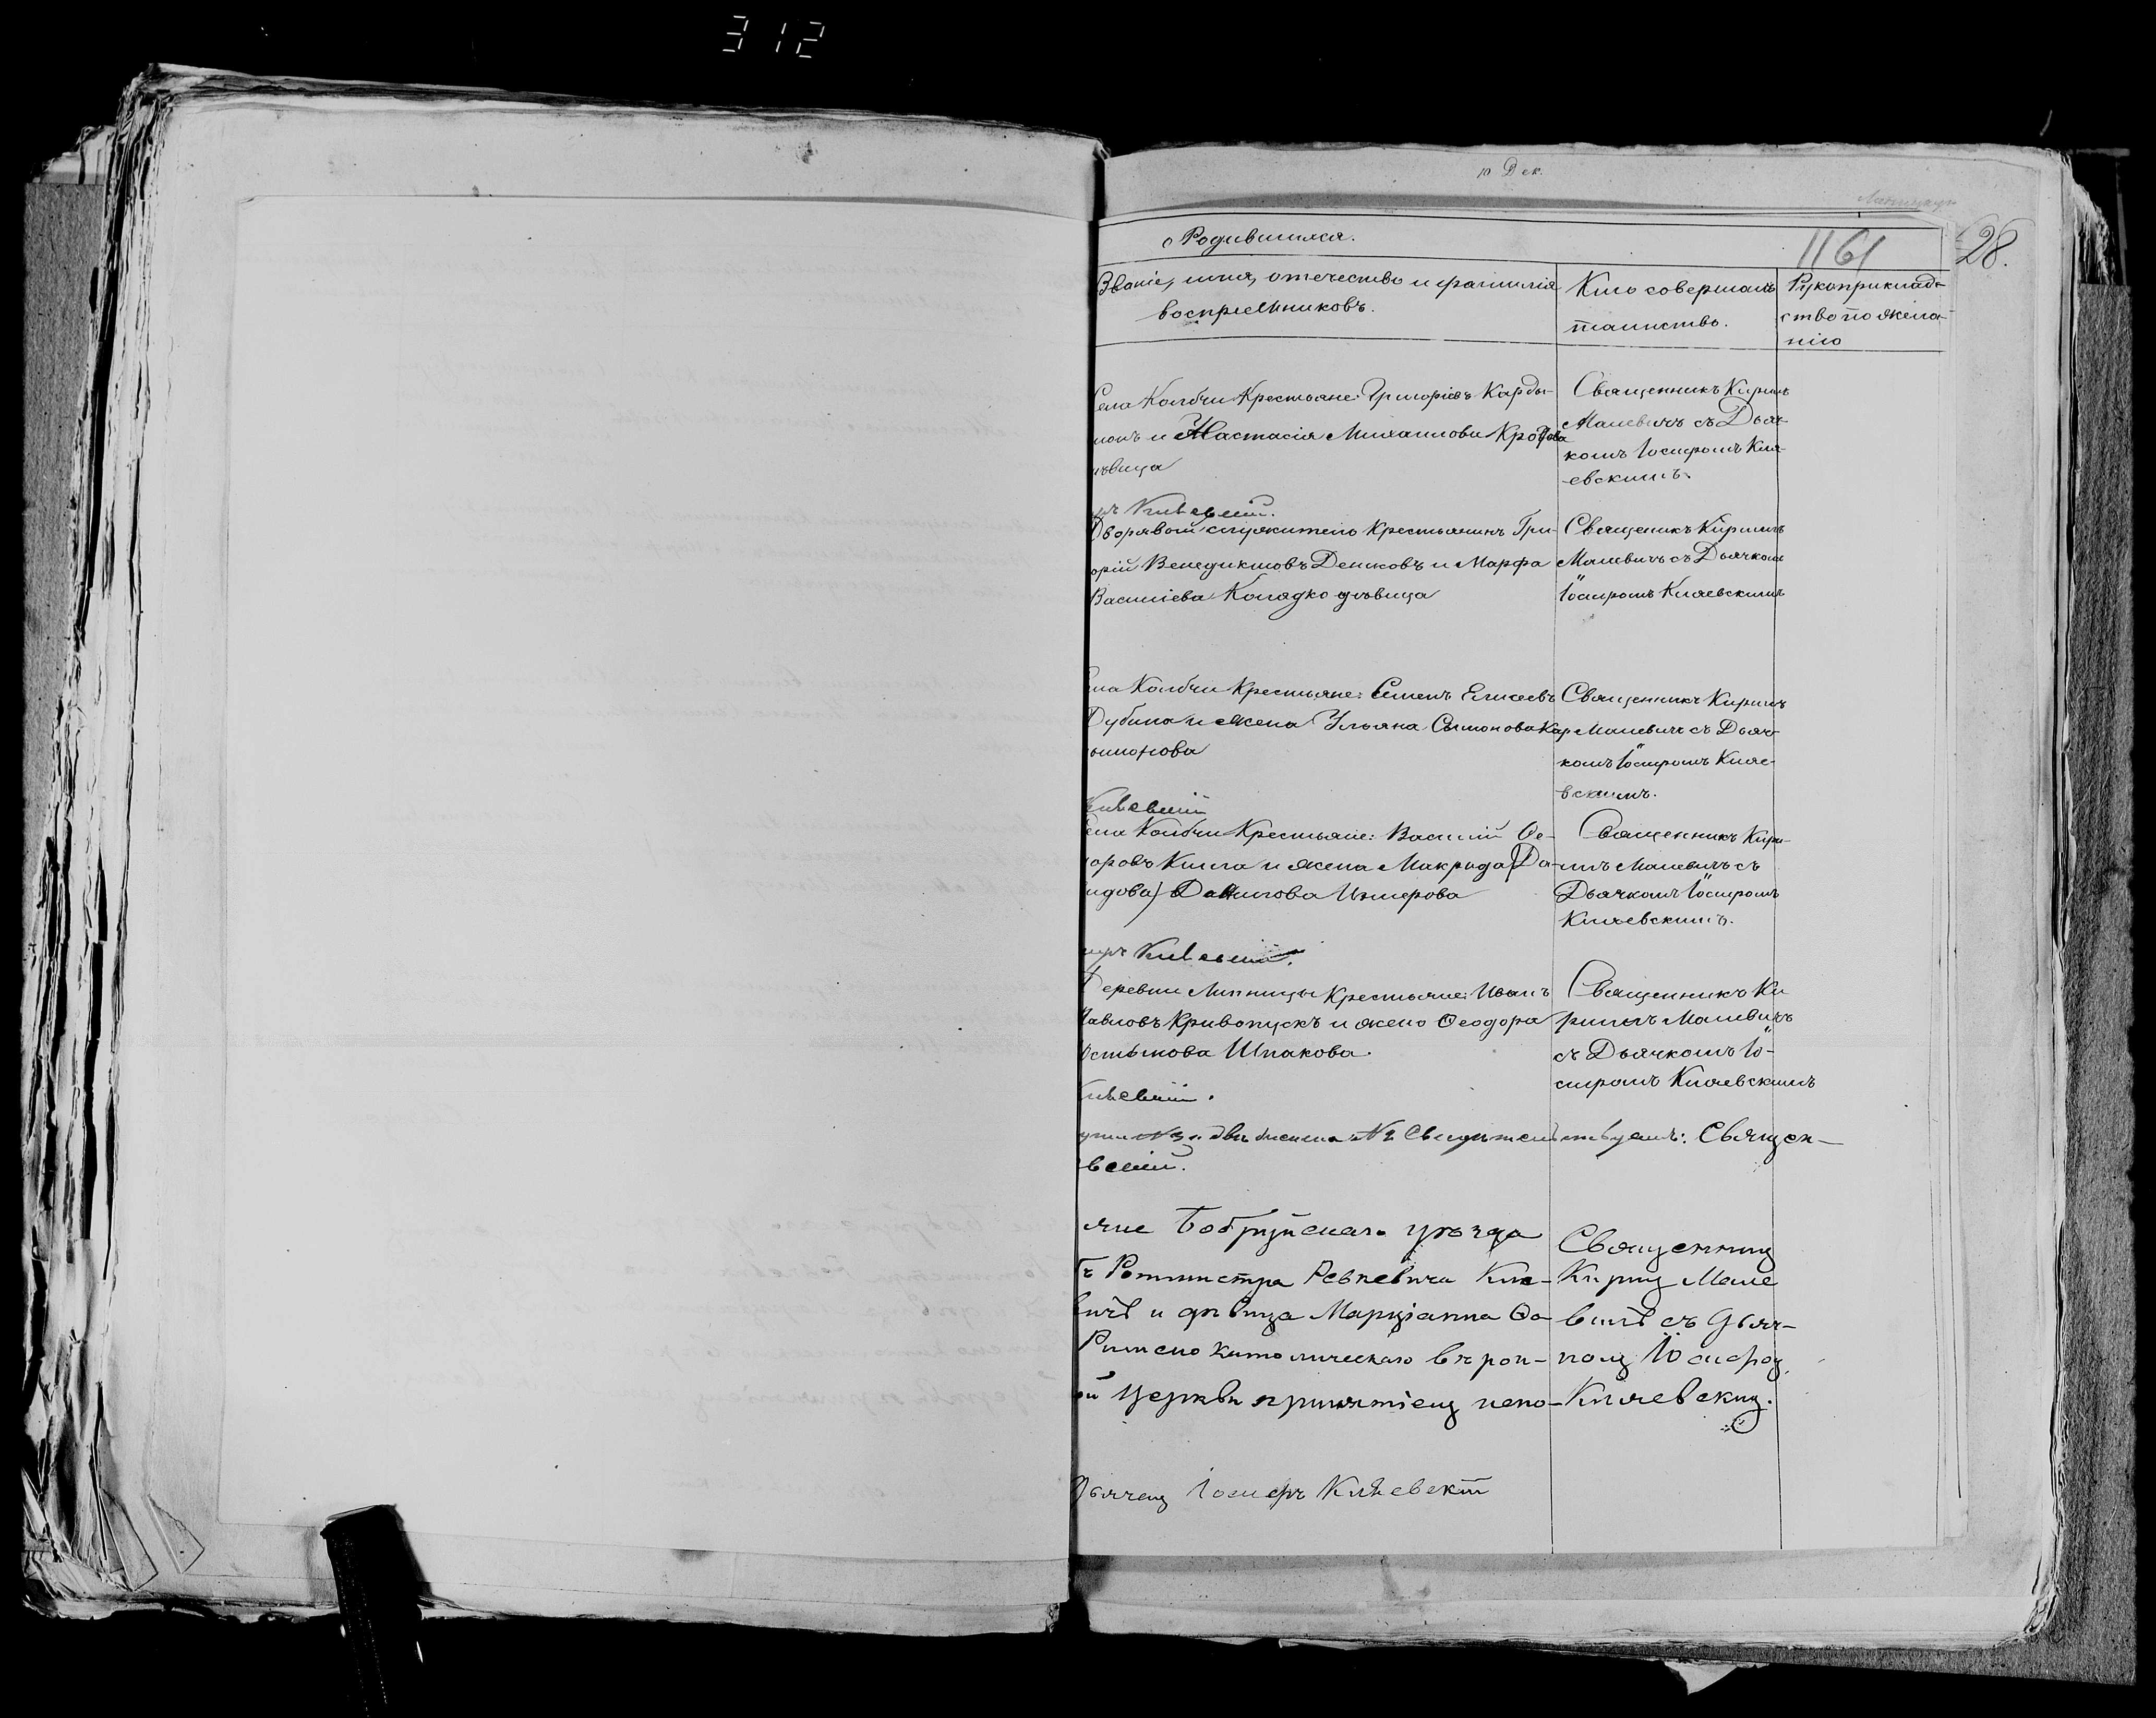 312
10 Дек.
о Родившихся.
1161
28.
Званіе, имя, отечество и фамилія
воспріемниковъ.
Кто совершалъ
таинство.
Рукоприклад-
ство по жела-
нію
Села Колбчи Крестьяне: Григорій Карды-
монъ и Настасія Михаилова
дѣвица
Священникъ Кирилъ
Малевичъ съ Дьяч-
комъ Іосифомъ Кля-
евскимъ.
Клѣевскій.
крестьянинъ Гри-
орій Венедиктовъ Денисовъ и Марфа
Василіева Колядко дѣвица
Священикъ Кирилъ
Малевичъ съ Дьячком
Іосифомъ Кляевскимъ
ела Колбчи Крестьяне: Семенъ Елисеевъ
Дубина и жена Ульяна Сымонова Кар
ымонова
Священникъ Кирилъ
Малевичъ съ Дьяч-
комъ Іосифомъ Кляе-
вскимъ.
Клѣевскій
ела Колбчи Крестьяне: Василій Ѳе-
оровъ и жена Макрида (Да-
идова) Данилова
Священникъ Кири-
лъ Малевичъ съ
Дьячкомъ Іосифомъ
Кляевскимъ.
Клѣевскій.
Деревни Липницы Крестьяне: Иванъ
Павловъ Кривопускъ и жена Ѳеодора
Шпакова.
Священникъ Ки
рилъ Малевичъ
съ Дьячкомъ Іо-
сифомъ Кляевскимъ
Клѣевскій.
двѣ женска №2 Свидѣтельствуемъ: Священ-
вскій.
яне Бобруйскаго уѣзда
Ротмистра Ревкевича Кли-
вичъ и дѣвица Марціанна Ѳо-
Римско Католическаго вѣрои-
й церкви принятіемъ испо-
Священник
Кирилъ Мале
вичъ съ Дьяч-
комъ Іосифом
Кляевским.
Дьячекъ Іосифъ Клѣевскій